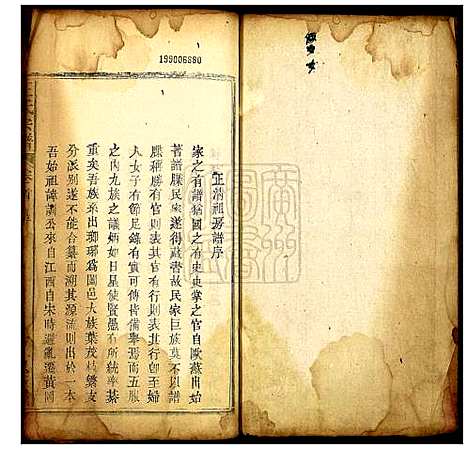 199006880
正清祖房譜序
家之有譜猶國之有史史掌之官自歐蘇出始
著譜牒民家遂得敵書故民家巨族莫不以譜
牒稱勝有官則表其官有行則表其行甚至婦
人女子有節足錄有寅可傳皆備譽而五服
之內九族之議炳如日星使賢愚有所統率綦
重矣吾族系出瑯琊為國邑大族葉茂枝繁支
分派別遂不能合纂而溯其源流則出於一本
吾始祖諱清公來自江西自宋時避亂遷黃岡